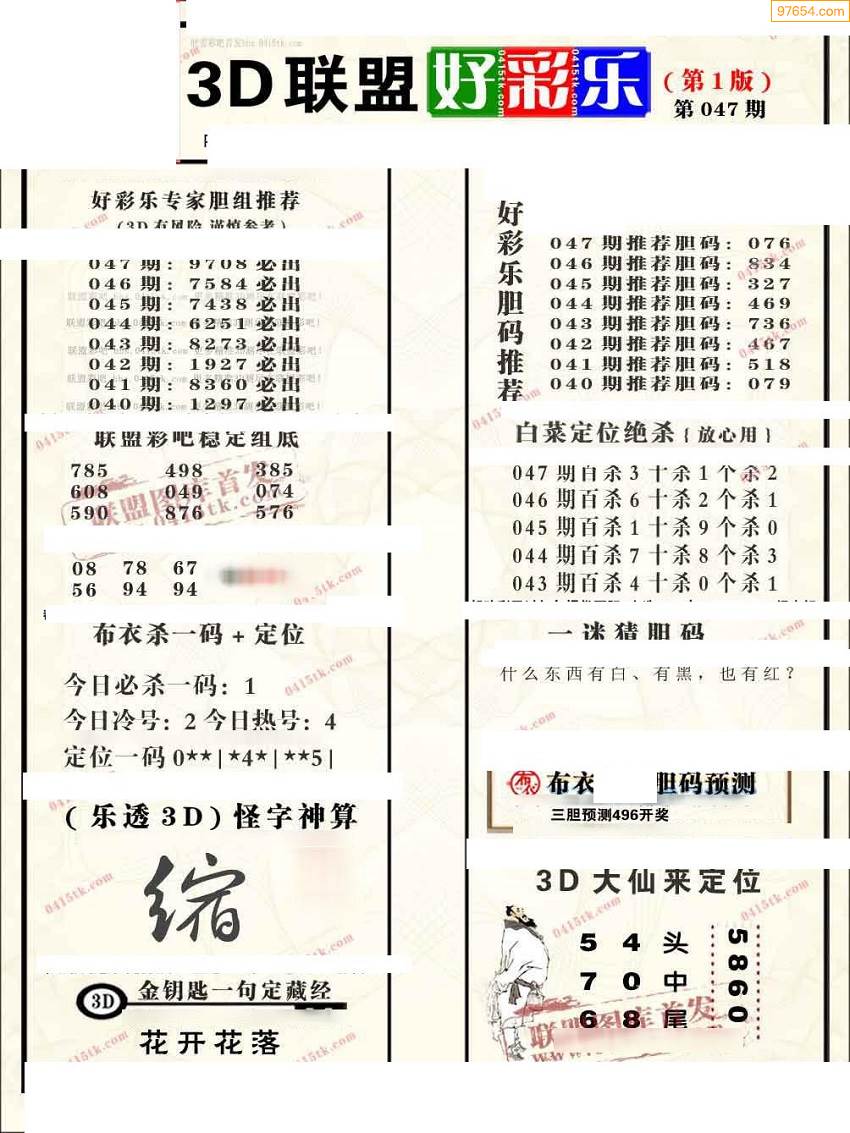 97654.com
3D 联盟 好彩乐
(第1版)
第 047 期
好彩乐专家胆组推荐
(3D有风险 谨慎参考)
047 期: 9708 必出
046 期: 7584 必出
045 期: 7438 必出
044 期: 6251 必出
043 期: 8273 必出
042 期: 1927 必出
041 期: 8360 必出
040 期: 1297 必出
联盟彩吧稳定组底
785 498 385
608 049 074
590 876 576
08 78 67
56 94 94
布衣杀一码 + 定位
今日必杀一码: 1
今日冷号: 2 今日热号: 4
定位一码 0**|*4*|**5|
(乐透3D) 怪字神算
缩
3D 金钥匙一句定藏经
花开花落
好彩乐胆码推荐
047 期推荐胆码: 076
046 期推荐胆码: 834
045 期推荐胆码: 327
044 期推荐胆码: 469
043 期推荐胆码: 736
042 期推荐胆码: 467
041 期推荐胆码: 518
040 期推荐胆码: 079
白菜定位绝杀{放心用}
047 期百杀 3 十杀 1 个杀 2
046 期百杀 6 十杀 2 个杀 1
045 期百杀 1 十杀 9 个杀 0
044 期百杀 7 十杀 8 个杀 3
043 期百杀 4 十杀 0 个杀 1
一迷猜胆码
什么东西有白、有黑，也有红？
布衣 布衣 胆码预测
三胆预测496开奖
3D 大仙来定位
5 4 头
7 0 中
6 8 尾
5860
联盟图库首发
0415tk.com